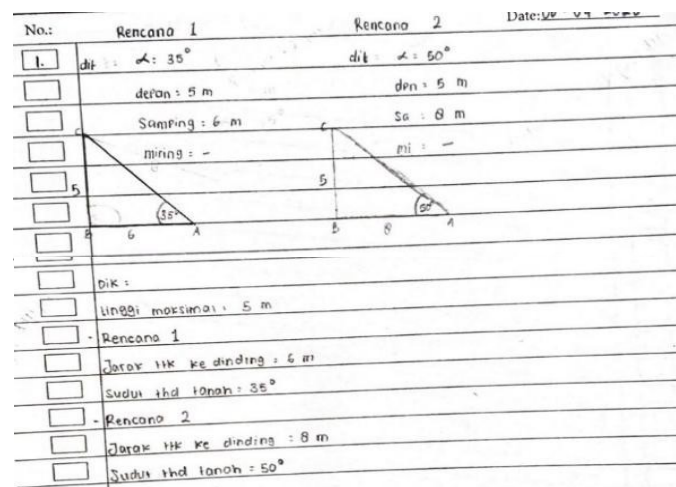 No.:
Rencana 1 Rencana 2 Date:
1. dit : α : 35° dit : α : 50°
depan : 5 m dpn : 5 m
Samping : 6 m Sa : 8 m
miring : - mi : -
C C
5 5
35° 50
B 6 A B 8 A
Dik :
tinggi maksimal : 5 m
- Rencana 1
Jarak ttk ke dinding : 6 m
Sudut thd tanah : 35°
- Rencana 2
Jarak ttk ke dinding : 8 m
Sudut thd tanah = 50°